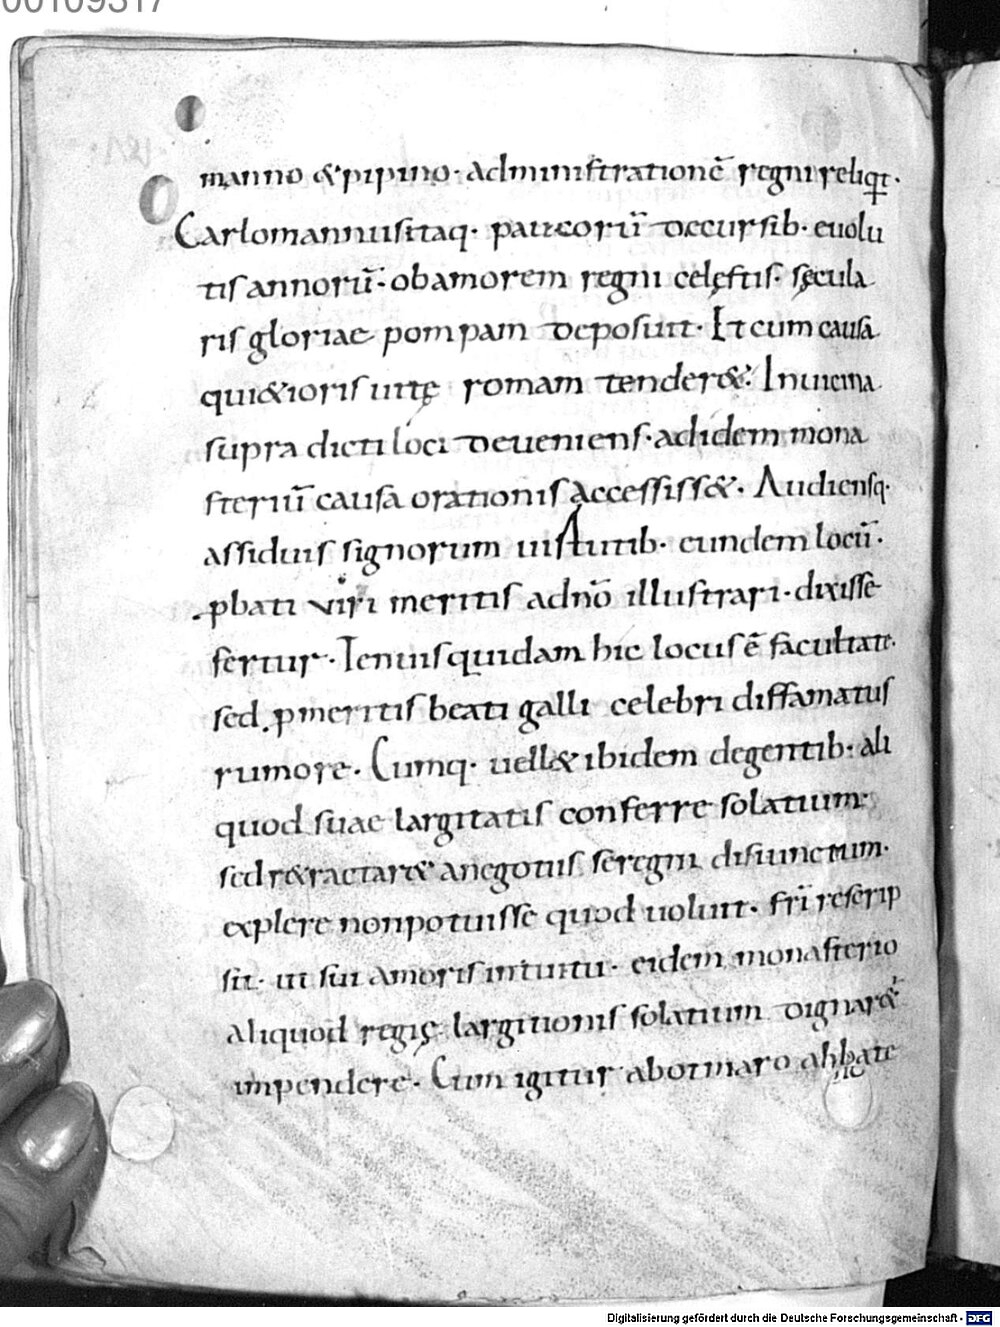 00109317
manno & pipino· administrationē regni reliqt·
Carlomannus itaq· paucorū decursib· euolu
tis annorū· ob amorem regni celęstis· sęcula
ris gloriae pompam deposuit· Et cum causa
qui&ioris uitę romam tender&· In uicina
supra dicti loci deueniens· ad idem mona
steriū causa orationis accessiss&· Audiensq·
assiduis signorum uirtutib· eundem locū·
pbati uiri meritis ad nō illustrari· dixisse
fertur· Tenuis quidam hic locus ē facultate·
sed p meritis beati galli celebri diffamatus
rumore· Cumq· uell& ibidem degentib· ali
quod suae largitatis conferre solatium·
sed r&ractar& a negotiis se regni disiunctum·
explere non potuisse quod uoluit· fri rescrip
sit· ut sui amoris intuitu· eidem monasterio
aliquod regię largitionis solatium dignar&
impendere· Cum igitur ab otmaro abbate
Digitalisierung gefördert durch die Deutsche Forschungsgemeinschaft - DFG